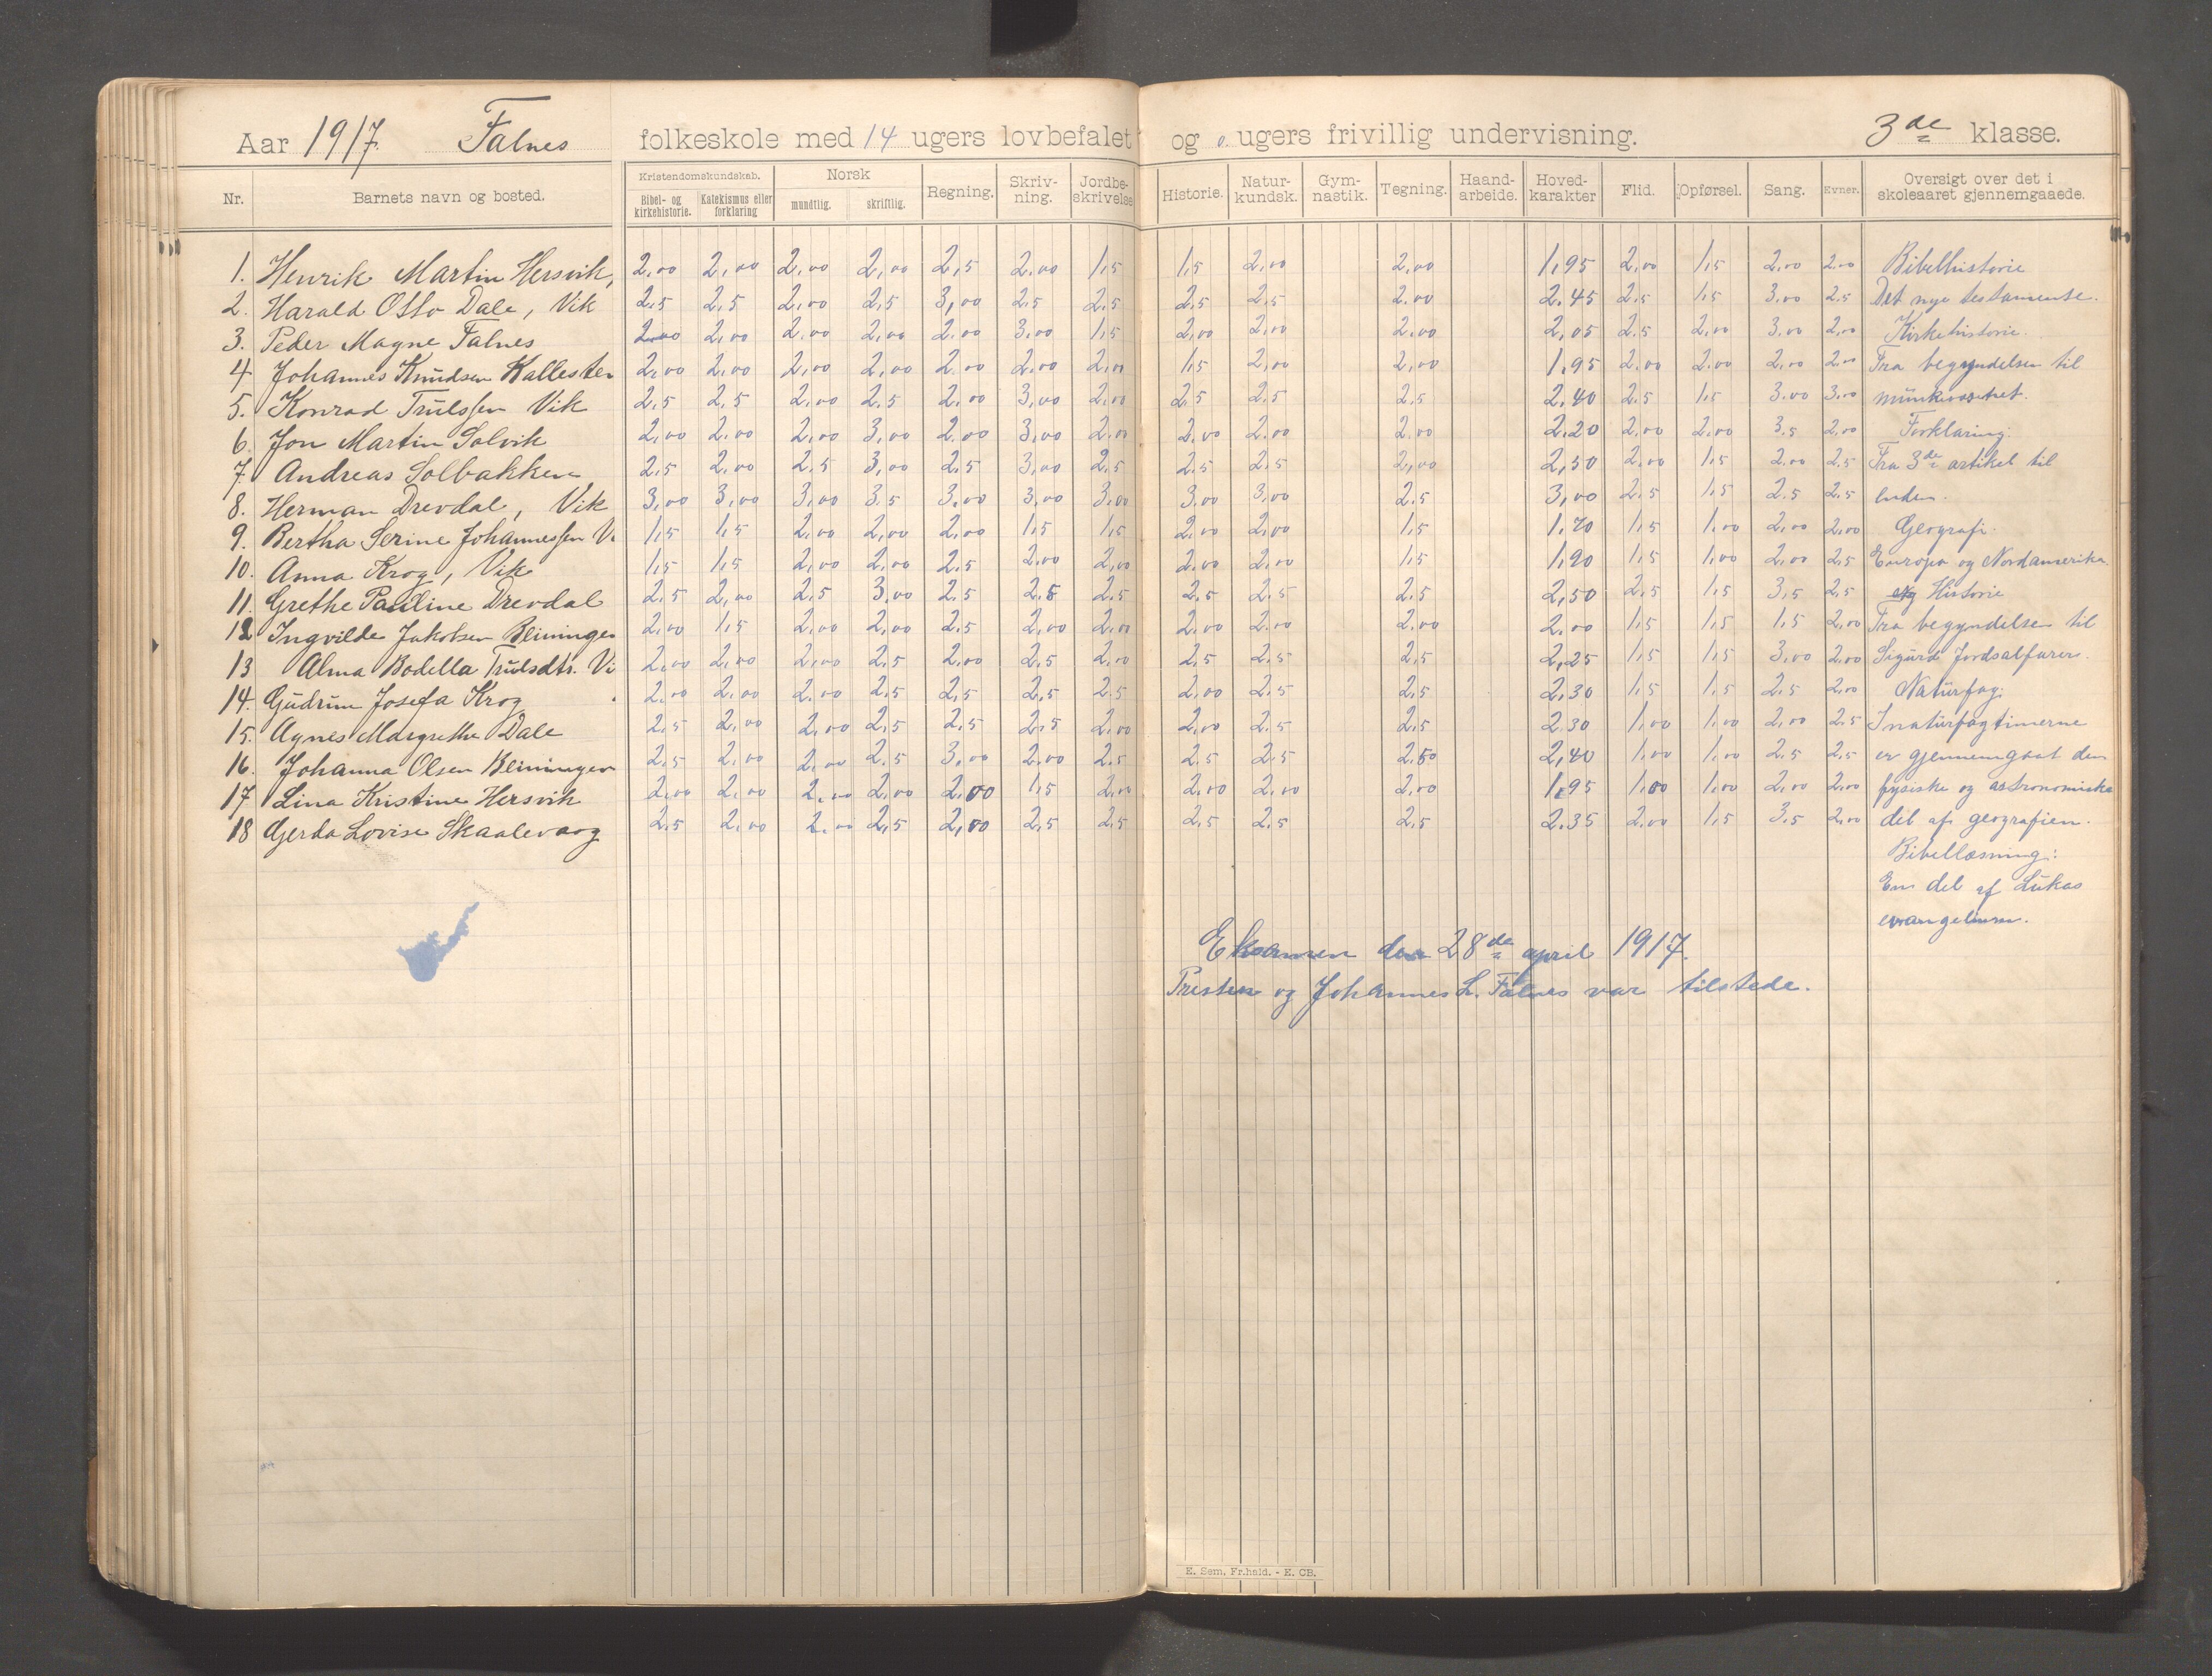 Aar 1917. Falnes folkeskole med 14 ugers lovbefalet og 0. ugers frivillig undervisning. 3de klasse.
Nr. Barnets navn og bosted. Kristendomskundskab. Bibel- og kirkehistorie. Katekismus eller forklaring Norsk mundtlig. skriftlig. Regning. Skriv-ning. Jordbe-skrivelse Historie. Natur-kundsk. Gym-nastik. Tegning. Haand-arbeide. Hoved-karakter Flid. Opførsel. Sang. Evner. Oversigt over det i skoleaaret gjennemgaaede.
1. Henrik Martin Hersvik, 2,00 2,00 2,00 2,00 2,5 2,00 1,5 1,5 2,00 2,00 1,95 2,00 1,5 2,00 2,00 Bibelhistorie
2. Harald Otto Dale, Vik 2,5 2,5 2,00 2,5 3,00 2,5 2,5 2,5 2,5 2,00 2,45 2,5 1,5 3,00 2,5 Det nye testamente.
3. Peder Magne Falnes 2,00 2,00 2,00 2,00 2,00 3,00 1,5 2,00 2,00 2,00 2,05 2,5 2,00 3,00 2,00 Kirkehistorie.
4 Johannes Knudsen Kallesten 2,00 2,00 2,00 2,00 2,00 2,00 2,00 1,5 2,00 2,00 1,95 2,00 2,00 2,00 2,00 Fra begyndelsen til
5. Konrad Trulssen Vik 2,5 2,5 2,00 2,5 2,00 3,00 2,00 2,5 2,5 2,5 2,40 2,5 1,5 3,00 3,00 munkevæsenet.
6. Jon Martin Solvik 2,00 2,00 2,00 3,00 2,00 3,00 2,00 2,00 2,00 2,00 2,20 2,00 2,00 3,5 2,00 Forklaring.
7. Andreas Solbakken 2,5 2,00 2,5 3,00 2,5 3,00 2,5 2,5 2,5 2,00 2,50 2,00 1,5 2,00 2,5 Fra 3de artikel til
8. Herman Drevdal, Vik 3,00 3,00 3,00 3,5 3,00 3,00 3,00 3,00 3,00 2,5 3,00 2,5 1,5 2,5 2,5 enden.
9. Bertha Serine Johannessen V. 1,5 1,5 2,00 2,00 2,00 1,5 1,5 2,00 2,00 1,5 1,70 1,5 1,00 2,00 2,00 Geografi.
10. Anna Krog, Vik 1,5 1,5 2,00 2,00 2,5 2,00 2,00 2,00 2,00 1,5 1,90 1,5 1,00 2,00 2,5 Europa og Nordamerika.
11. Grethe Pauline Drevdal 2,5 2,00 2,5 3,00 2,5 2,5 2,5 2,5 2,5 2,5 2,50 2,5 1,5 3,5 2,5 Historie
12 Ingvilde Jakobsen Bleiningen 2,00 1,5 2,00 2,00 2,5 2,00 2,00 2,00 2,00 2,00 2,00 1,5 1,5 1,5 2,00 Fra begyndelsen til
13 Alma Bodella Trulsdtr. Vi 2,00 2,00 2,00 2,5 2,00 2,5 2,00 2,5 2,5 2,5 2,25 1,5 1,5 3,00 2,00 Sigurd Jordsalfarer.
14. Gudrun Josefa Krog 2,00 2,00 2,00 2,5 2,5 2,5 2,5 2,00 2,5 2,5 2,30 1,5 1,5 2,5 2,00 Naturfag:
15. Agnes Margrethe Dale 2,5 2,00 2,00 2,5 2,5 2,5 2,00 2,00 2,5 2,5 2.30 1,00 1,00 2,00 2,5 I naturfagtimerne
16. Johanna Olsen Bleiningen 2,5 2,00 2,00 2,5 3,00 2,00 2,5 2,5 2,5 2,50 2,40 1,00 1,00 2,5 2,5 er gjennemgaat den
17 Lina Kristine Hersvik 2,00 2,00 2,00 2,00 2,00 1,5 2,00 2,00 2,00 2,00 1,95 1,00 1,00 2,00 2,00 fysiske og astronomiske
18 Gerda Lovise Skaalevaag 2,5 2,00 2,00 2,5 2,00 2,5 2,5 2,5 2,5 2,5 2.35 2,00 1,5 3,5 2,00 del af geografien.
Bibellæsning:
En del af Lukas
evangelium.
Eksamen den 28de april 1917.
Presten og Johannes L. Falnes var tilstede.
E. Sem, Fr.hald. - E. CB.